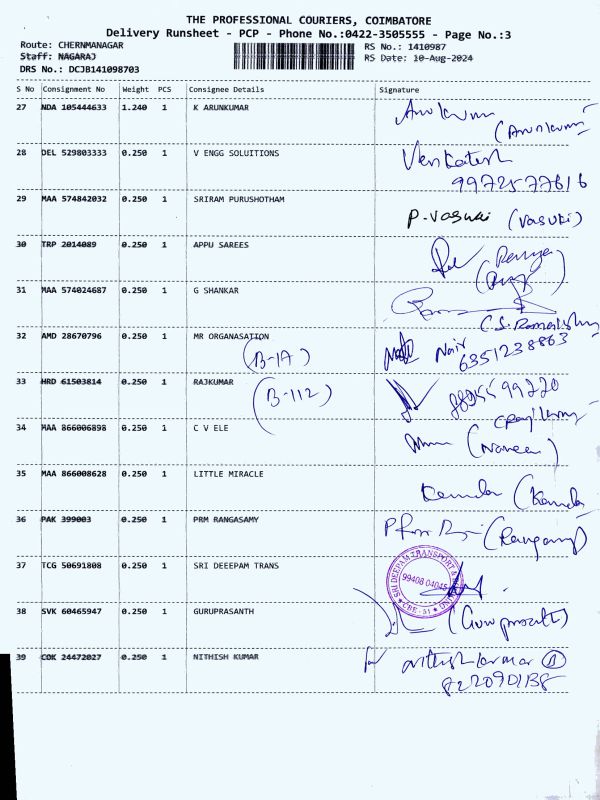 THE PROFESSIONAL COURIERS, COIMBATORE
Delivery Runsheet - PCP - Phone No.:0422-3505555 - Page No.:3
Route: CHERNMANAGAR
RS No.: 1410987
Staff: NAGARAJ
RS Date: 10-Aug-2024
DRS No.: DCJB141098703
S No Consignment No Weight PCS Consignee Details Signature
27 NDA 105444633 1.240 1 K ARUNKUMAR
28 DEL 529803333 0.250 1 V ENGG SOLUITIONS Venkatesh
9972577616
29 MAA 574842032 0.250 1 SRIRAM PURUSHOTHAM P-Vasuki (Vasuki)
30 TRP 2014089 0.250 1 APPU SAREES
31 MAA 574024687 0.250 1 G SHANKAR
32 AMD 28670796 0.250 1 MR ORGANASATION Nair
(B-17) 6351238863
33 HRD 61503814 0.250 1 RAJKUMAR
(B-112)
34 MAA 866006898 0.250 1 C V ELE (Naveen)
35 MAA 866008628 0.250 1 LITTLE MIRACLE Kamala (Kamala
36 PAK 399003 0.250 1 PRM RANGASAMY
37 TCG 50691808 0.250 1 SRI DEEEPAM TRANS
SRI DEEPAM TRANSPORT &
99408 04045
CBE - 51
38 SVK 60465947 0.250 1 GURUPRASANTH (Guruprasath)
39 COK 24472027 0.250 1 NITHISH KUMAR nithish kumar